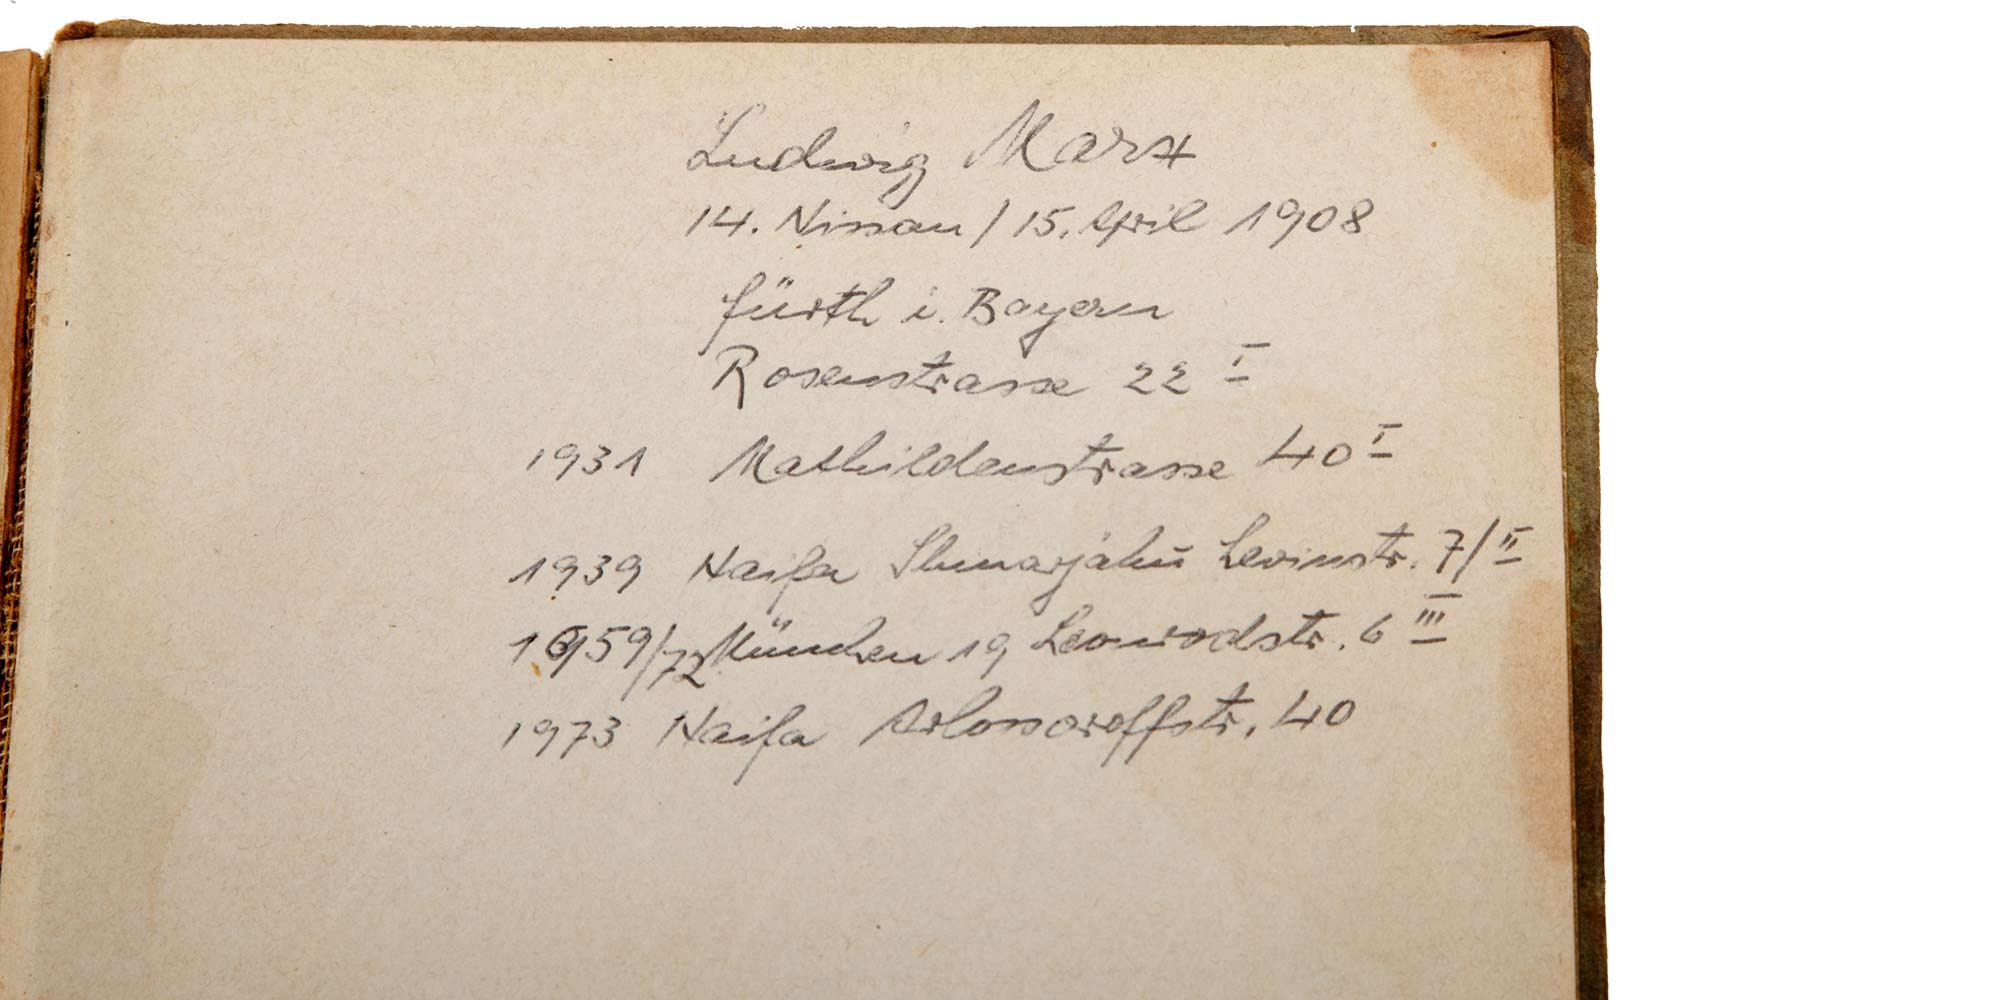 Ludwig Marx
14. Nissan / 15. April 1908
Fürth i. Bayern
Rosenstrasse 22 I
1931 Mathildenstrasse 40 I
1939 Haifa Shmarjahu Levinstr. 7/II
1959/72 München 19 Leonrodstr. 6 III
1973 Haifa Arlosoroffstr. 40